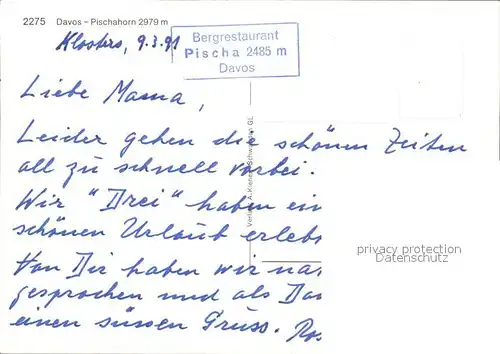 2275 Davos - Pischahorn 2979 m
Klosters, 9.3.91
Bergrestaurant
Pischa 2485 m
Davos
Liebe Mama,
Leider gehen die schönen Zeiten
all zu schnell vorbei.
Wir "Drei" haben ein
schönen Urlaub erleb
Von Dir haben wir na
gesprochen und als Da
einen süssen Gruss. Ros
privacy protection
Datenschutz